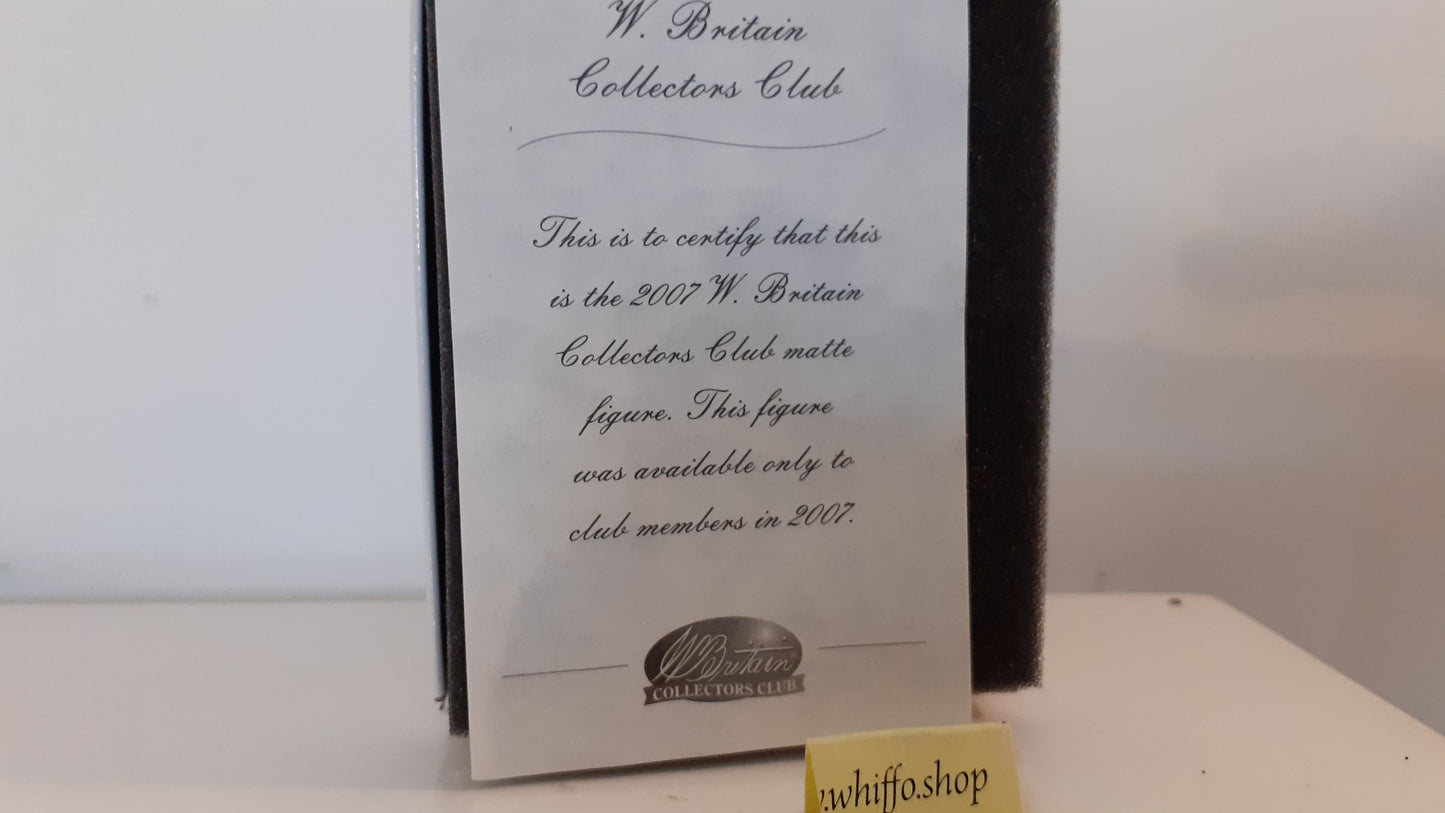 W. Britain
Collectors Club
This is to certify that this
is the 2007 W. Britain
Collectors Club matte
figure. This figure
was available only to
club members in 2007.
W Britain®
COLLECTORS CLUB
.whiffo.shop